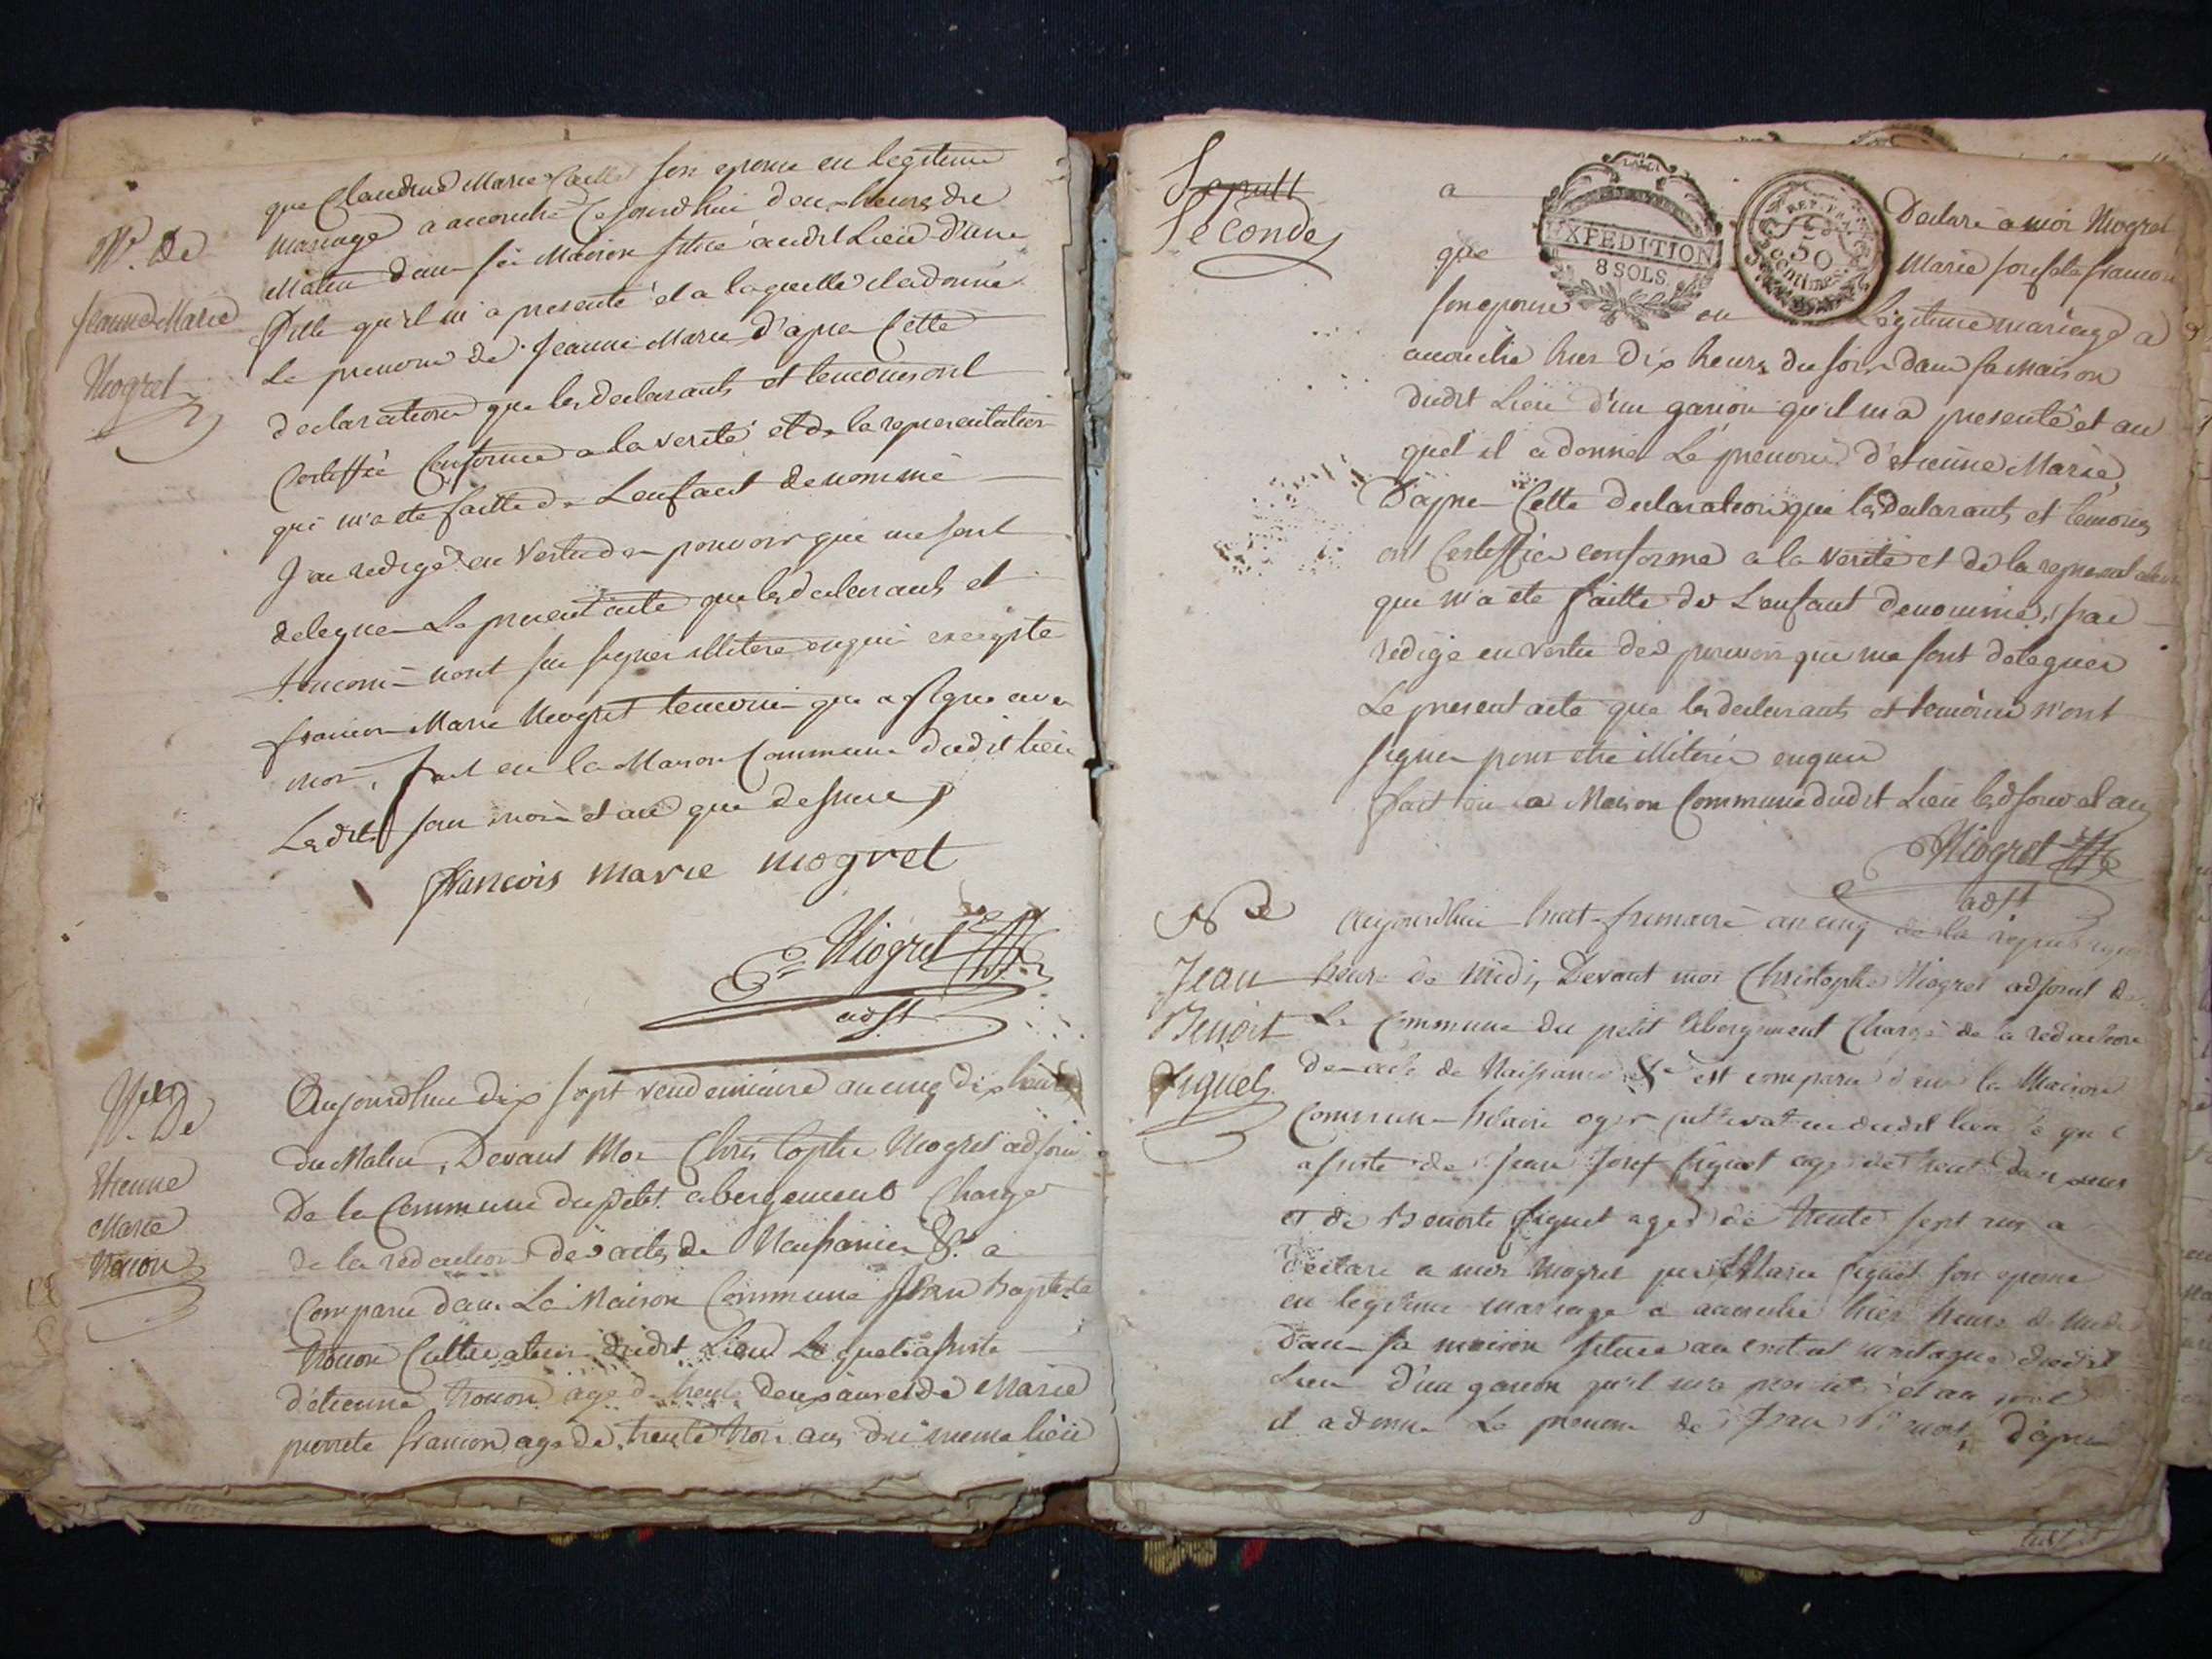 que Claudine Marie Caillet son epouse en legitime
mariage a accouché cejourdhui deux heures du
matin dans sa maison sittué audit Lieu d'une
fille qu'il m'a presenté et a laquelle il a donné
Le prenom de Jeanne Marie d'apres Cette
declaration que les declarants et temoins ont
Certiffié Conforme a la verité et de la representation
qui m'a eté faitte de L'enfant denommé
J'ai redigé en Vertu des pouvoirs qui me sont
delegues Le present acte que les declarants et
temoins n'ont su signer illiteré enquis excepte
francois Marie Niogret temoin qui a signe avec
moi, fait en la Maison Commune dudit lieu
Lesdits jour mois et an que dessus
francois marie niogret
Niogret
adjt
Nce De
Jeanne Marie
Niogret
Nce De
Etienne
Marie
Aujourdhui dix sept vendemiaire an cinq dix heures
du Matin, Devant Moi Christophe Niogret adjoin
De la Commune du petit abergement Chargé
de la redaction des actes de Naissances &a. a
Comparu dans La Maison Commune Jean Baptiste
Cultivateur dudit Lieu Lequel assisté
d'étienne agé de trente deux ans et de Marie
pierrete francon agé de trente trois ans du meme lieu
Saputt
Secondes
a Declaré a moi Niogret
que Marie Josephte francon
son epouse en Légitime mariage a
accouché hier dix heures du soir dans sa maison
dudit Lieu d'un garçon qu'il m'a presenté et au
quel il a donné Le prenom d'etienne Marie,
D'apres Cette declaration que les declarants et temoins
ont Certiffié conforme a la verité et de la representation
que m'a eté faitte de L'enfant denommé, j'ai
redigé en vertu des pouvoirs qui me sont delegués
Le present acte que les declarants et temoins n'ont
signer pour etre illiteré enquis
fait en la Maison Commune dudit Lieu lesd jour et an
Niogret
adjt
Nce
Jean
Benoit
Figuet
Aujourdhui huit frimaire an cinq de la republique
heure de midi, Devant moi Christophe Niogret adjoint de
La Commune du petit abergement Chargé de la redaction
des acte de Naissance &a est comparu dans la Maison
Commune oger cultivateur dudit lieu le quel
assisté de Jean Josef figuet agé de trente deux ans
et de Benoite figuet agé de trente sept ans a
declaré a moi Niogret que Marie figuet son epouse
en legitime mariage a accouché hier heure de midi
dans sa maison situee au montagne dudit
Lieu d'un garcon qu'il m'a presenté et au quel
il a donné Le prenom de Jean Benoit, d'apres
EXPEDITION
8 SOLS.
REP. FRA.
50
centimes